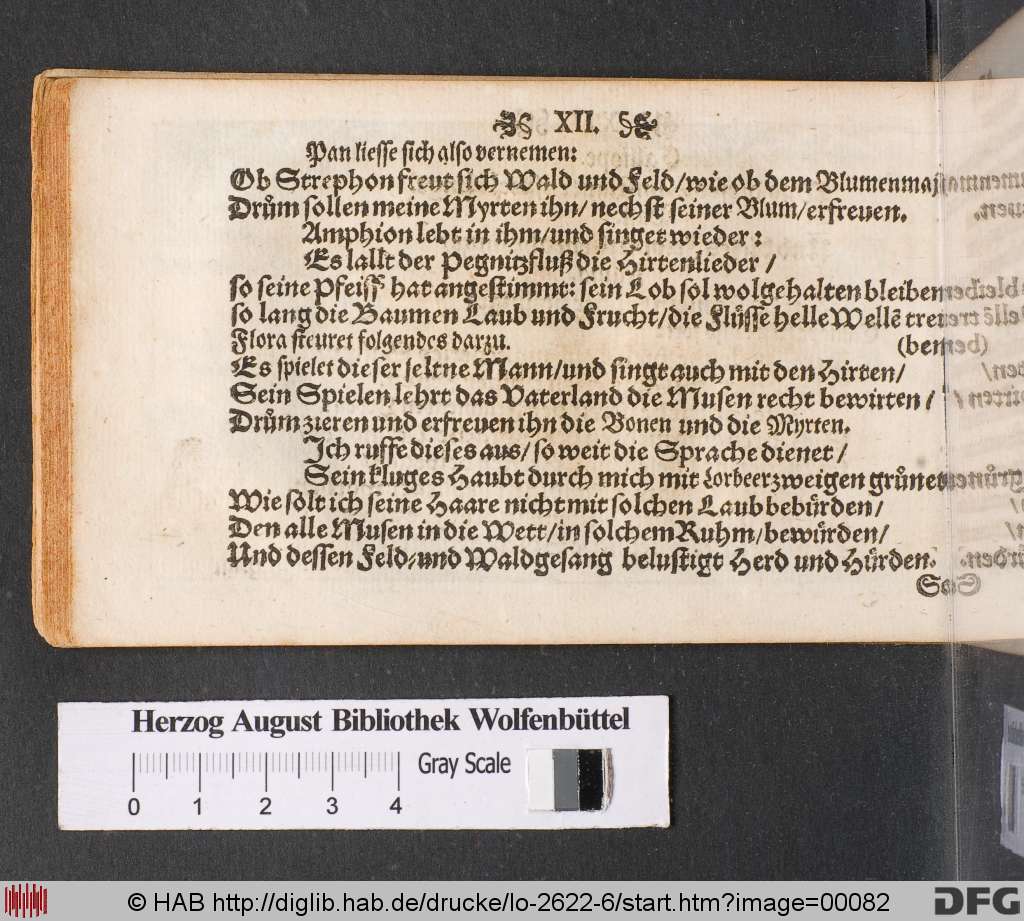 XII.
Pan liesse sich also vernemen:
Ob Strephon freut sich Wald und Feld/wie ob dem
Drům sollen meine Myrten ihn/ nechst seiner Blum/erfreuen.
Amphion lebt in ihm/und singet wieder:
Es lallt der Pegnitzfluß die Hirtenlieder /
so seine Pfeiff hat angestimmt: sein Lob sol wolgehalten bleiben
so lang die Baumen Laub und Frucht/die Flüsse helle Wellē
Flora steuret folgendes darzu.
Es spielet dieser seltne Mann/und singt auch mit den Hirten/
Sein Spielen lehrt das Vaterland die Musen recht bewirten /
Drům zieren und erfreuen ihn die Bonen und die Myrten.
Ich ruffe dieses aus/ so weit die Sprache dienet /
Sein kluges Haubt durch mich mit Lorbeerzweigen grůnet
Wie solt ich seine Haare nicht mit solchen Laub bebürden/
Den alle Musen in die Wett/in solchem Ruhm/bewürden/
Und dessen Feld-und Waldgesang belustigt Herd und Hürden.
Herzog August Bibliothek Wolfenbüttel
Gray Scale
0 1 2 3 4
© HAB http://diglib.hab.de/drucke/lo-2622-6/start.htm?image=00082
DFG